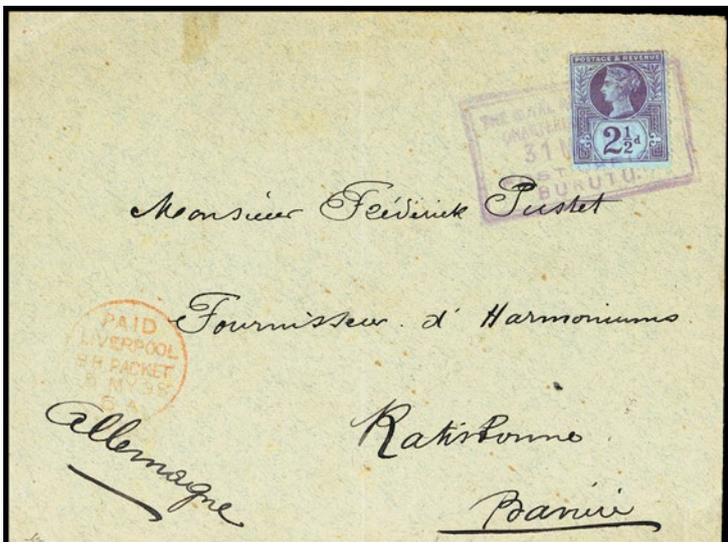 POSTAGE & REVENUE
2½d
THE ROYAL
CHARTERED
31
POST
BURUTU.
Monsieur Fréderick Pustet
Fournisseur d' Harmoniums
PAID
LIVERPOOL
BR PACKET
MY 98
5 A
Ratisbonne
Allemagne
Bavière